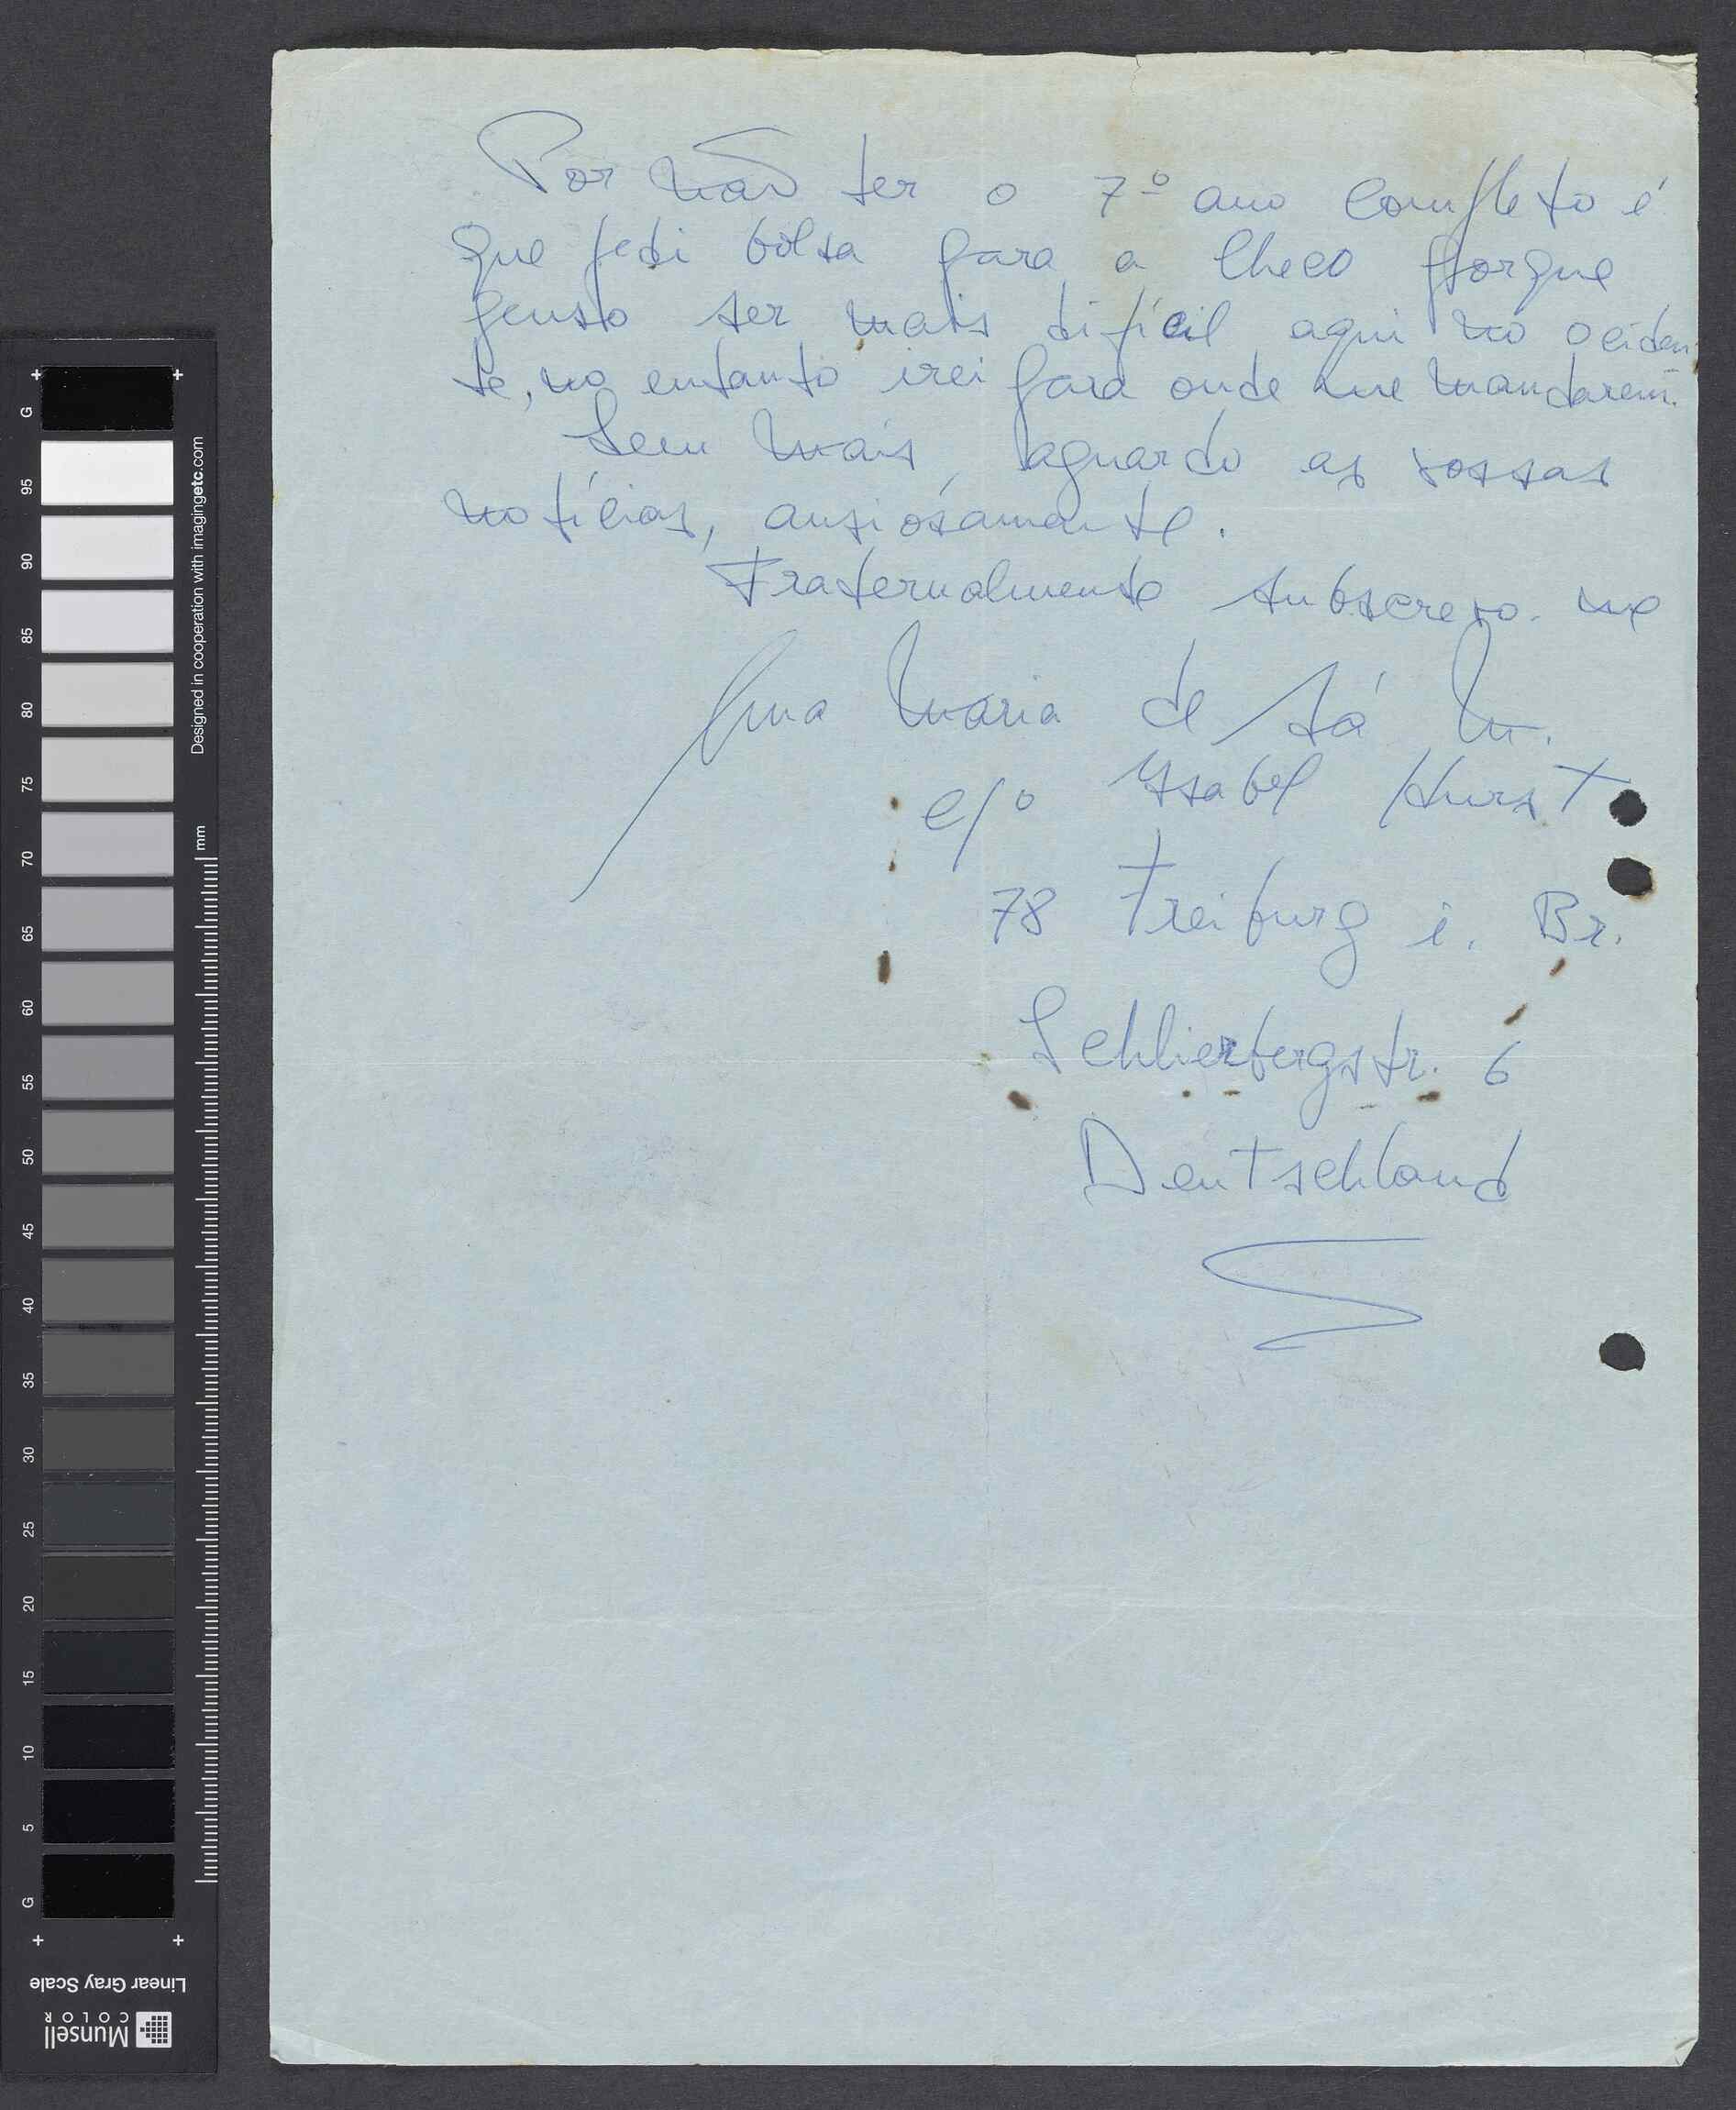 Por não ter o 7º ano completo é
que pedi bolsa para a Checo porque
penso ser mais difícil aqui no ociden
te, no entanto irei para onde me mandarem.
Sem mais, aguardo as vossas
notícias, ansiósamente.
Fraternalmente subscrevo-me
Ana Maria de Sá M.
c/o Ysabel Hurst
78 Freiburg i. Br.
Schlierbergstr. 6
Deutschland
G
95
90
85
80
75
70
65
60
55
50
45
40
35
30
25
20
15
10
5
G
Designed in cooperation with imagingetc.com
mm
Linear Gray Scale
Munsell
COLOR